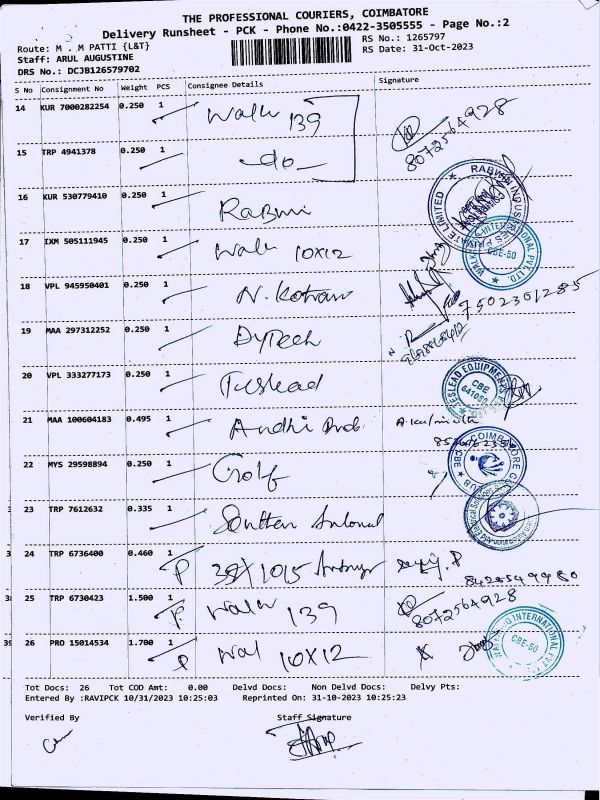 THE PROFESSIONAL COURIERS, COIMBATORE
Delivery Runsheet - PCK - Phone No.:0422-3505555 - Page No.:2
Route: M . M PATTI {L&T}
RS No.: 1265797
Staff: ARUL AUGUSTINE
RS Date: 31-Oct-2023
DRS No.: DCJB126579702
S No Consignment No Weight PCS Consignee Details Signature
14 KUR 7000282254 0.250 1 Walk 139
8072564928
15 TRP 4941378 0.250 1 do
16 KUR 530779410 0.250 1 Rabwi
RABWI INDUSTRIES PRIVATE LIMITED
17 IXM 505111945 0.250 1 Walk 10X12
CBE-50
18 VPL 945950401 0.250 1 N. Kotran
7502301285
19 MAA 297312252 0.250 1 Dytech
20 VPL 333277173 0.250 1 Teeslead
TEESLEAD EQUIPMENTS
CBE
641050
21 MAA 100604183 0.495 1 Andhi
22 MYS 29598894 0.250 1 Golf
COIMBATORE
23 TRP 7612632 0.335 1 Southern
24 TRP 6736400 0.460 1 P 38X1015
8428549980
25 TRP 6730423 1.500 1 P Walk 139
8072564928
26 PRO 15014534 1.700 1 P Wal 10X12
INTERNATIONAL
CBE-50
Tot Docs: 26 Tot COD Amt: 0.00 Delvd Docs: Non Delvd Docs: Delvy Pts:
Entered By :RAVIPCK 10/31/2023 10:25:03 Reprinted On: 31-10-2023 10:25:23
Verified By Staff Signature